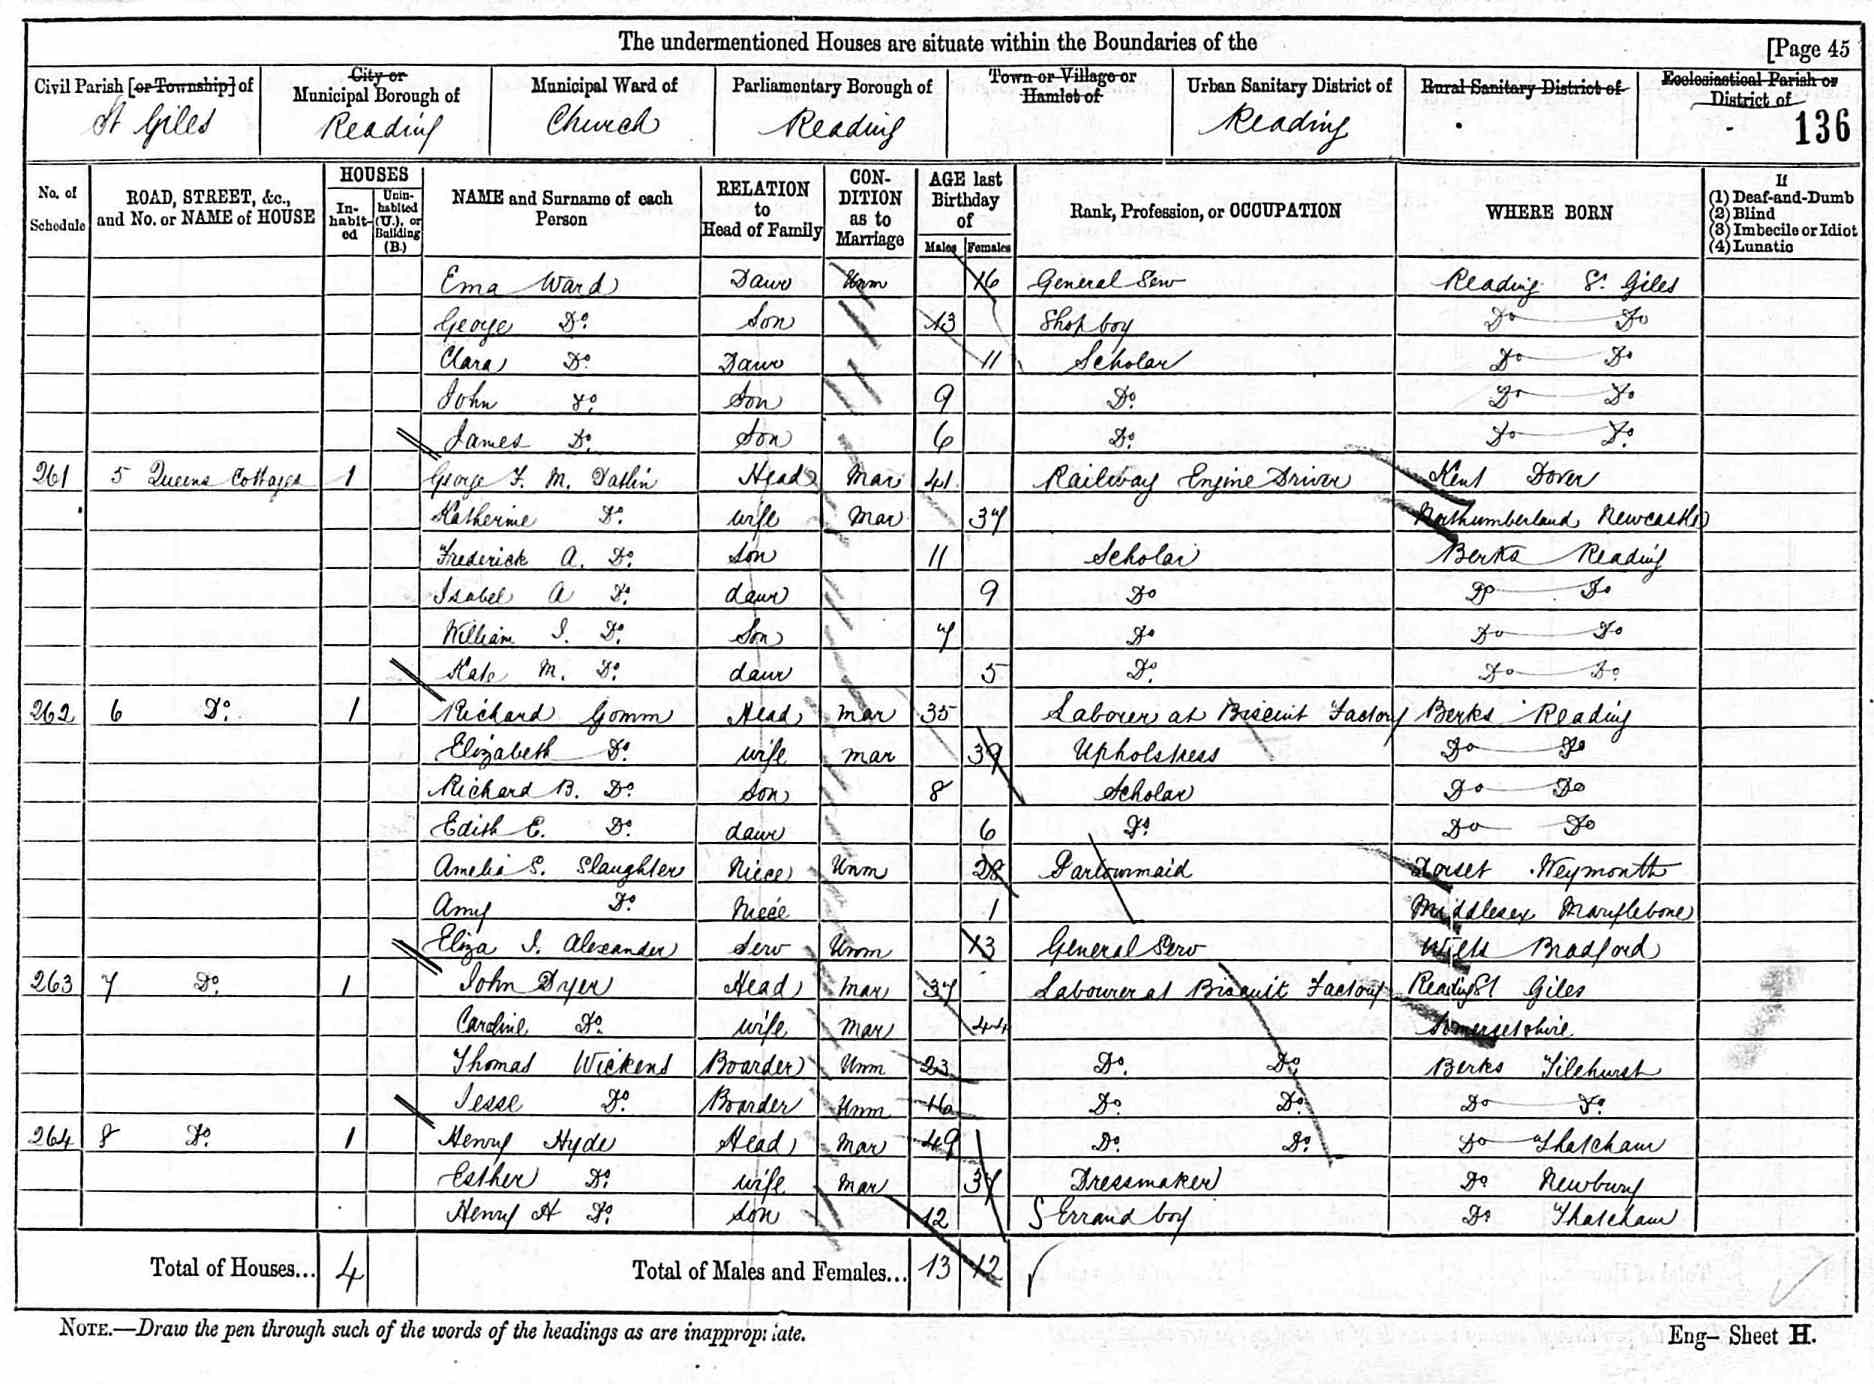 The undermentioned Houses are situate within the Boundaries of the [Page 45
Civil Parish [or Township] of City or Municipal Borough of Municipal Ward of Parliamentary Borough of Town or Village or Hamlet of Urban Sanitary District of Rural Sanitary District of Ecclesiastical Parish or District of
St Giles Reading Church Reading Reading 136
No. of Schedule ROAD, STREET, &c., and No. or NAME of HOUSE HOUSES Inhabited Uninhabited (U.), or Building (B.) NAME and Surname of each Person RELATION to Head of Family CONDITION as to Marriage AGE last Birthday of Males Females Rank, Profession, or OCCUPATION WHERE BORN If (1) Deaf-and-Dumb (2) Blind (3) Imbecile or Idiot (4) Lunatic
Ema Ward Daur Unm 16 General Serv Reading St Giles
George Do. Son 13 Shop boy Do Do
Clara Do. Daur 11 Scholar Do Do
John Do. Son 9 Do. Do Do
James Do. Son 6 Do. Do Do.
261 5 Queens Cottages 1 George F. M. Head Mar 41 Railway Engine Driver Kent Dover
Katherine Do. wife Mar 37 Northumberland Newcastle
Frederick A. Do. Son 11 Scholar Berks Reading
Isabel A Do. daur 9 Do Do Do
William I. Do. Son 7 Do Do Do
Kate M. Do. daur 5 Do. Do Do.
262 6 Do. 1 Richard Gomm Head Mar 35 Laborer at Biscuit Factory Berks Reading
Elizabeth Do. wife Mar 39 Upholstress Do Do
Richard B. Do. Son 8 Scholar Do Do
Edith E. Do. daur 6 Do. Do Do
Amelia S. Slaughter Niece Unm 28 Parlourmaid Dorset Weymouth
Amy Do. Niece 1 Middlesex Maryflebone
Eliza I. Alexander Serv Unm 13 General Serv Wilts Bradford
263 7 Do. 1 John Dyer Head Mar 37 Labourer at Biscuit Factory Reading St Giles
Caroline Do. wife Mar 44 Somersetshire
Thomas Wickens Boarder Unm 23 Do. Do. Berks Tilehurst
Jesse Do. Boarder Unm 16 Do. Do. Do Do.
264 8 Do. 1 Henry Hyde Head Mar 49 Do. Do. Do Thatcham
Esther Do. wife Mar 37 Dressmaker Do Newbury
Henry H Do. Son 12 S Errand boy Do Thatcham
Total of Houses... 4 Total of Males and Females... 13 12
NOTE.—Draw the pen through such of the words of the headings as are inappropriate. Eng- Sheet H.